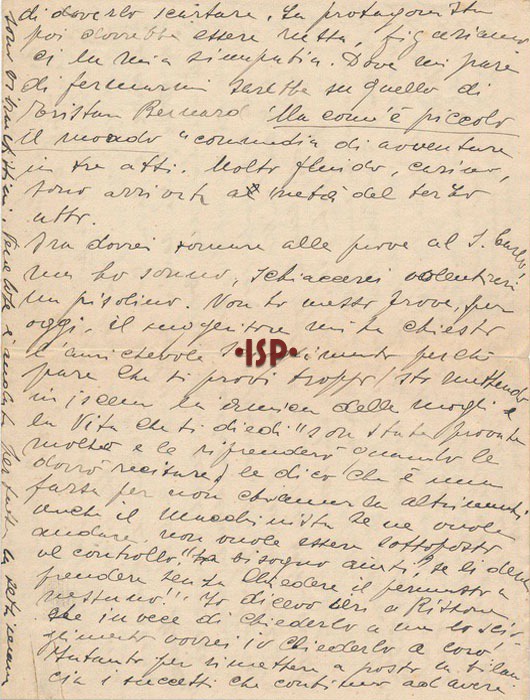 di doverlo scartare. La protagonista
poi dovrebbe essere retta,
ci la mia simpatia. Dove mi pare
di fermarmi sarebbe su quello di
Tristan Bernard "Ma com'è piccolo
il mondo" commedia di avventure
in tre atti. Molto fluido, carino,
sono arrivata a metà del terzo
atto.
Ora dovrei tornare alle prove al S. Carlo,
ma ho sonno, schiaccerei volentieri
un pisolino. Non ho messo prove, per
oggi, il suggeritore mi ha chiesto
perchè
pare che si provi troppo, sto mettendo
in scena la nemica delle mogli e
la Vita che ti diedi "son state provate
molto e le riprenderò quando le
dovrò recitare", le dico che è una
farsa per non chiamarla altrimenti
anche il macchinista se ne vuole
andare. non vuole essere sottoposto
al controllo. "ha bisogno aiuti, se li deve
prendere senza chiedere il permesso a
nessuno!" Io dicevo ieri a Rissone
che invece di chiederlo a me lo scio-
glimento vorrei io chiederlo a loro!
Intanto per rimettere a posto la bilan
cia i successi che continuo ad avere
sono
ISP